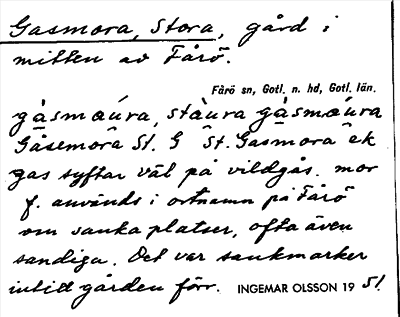 Gasmora, Stora, gård i
mitten av Fårö.
Fårö sn, Gotl. n. hd, Gotl. län.
gàsmæúra, stàura gàsmæúra
Gåsemora St. G St. Gasmora ek
gas syftar väl på vildgås. mor
f. används i ortnamn på Fårö
om sanka platser, ofta även
sandiga. Det var sankmarker
intill gården förr. INGEMAR OLSSON 19 51.